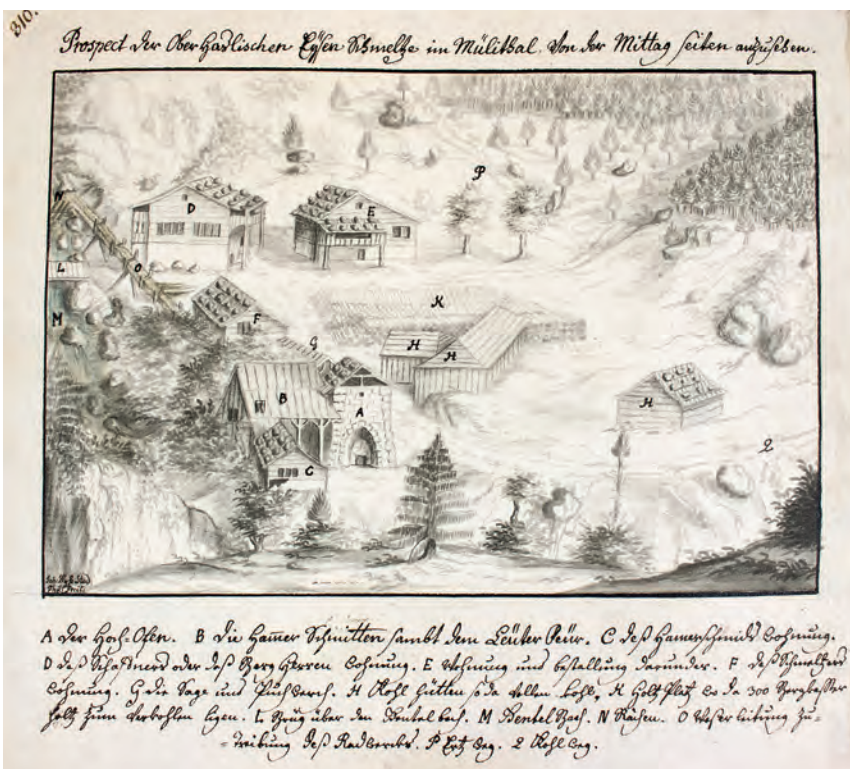 310.
Prospect der Ober Haslischen Eÿsen Schmeltze im Mülithal. Von der Mittag seiten anzusehen.
P
N
D E
L O
M F K
G H
H
B A H
C Q
A der Hoch-Ofen. B die Hammer Schmitten sambt dem Leüter Feür. C deß Hamerschmids wohnung.
D deß Schaffners oder deß Berg Herren wohnung. E Wohnung und bestallung darunder. F deß Schmeltzers
wohnung. G die Sage und Puchwerch. H Kohl hütten so da vollen kohl, K Holtz Platz wo da 300
holtz zum verkohlen ligen. L Brug über den Bentel bach. M Bentel Bach. N Rächen. O Waßer leitung zu-
=Treibung deß Radwercks. P Ertz weg. Q Kohl weg.